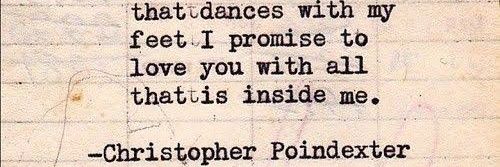 that dances with my
feet I promise to
love you with all
that is inside me.
-Christopher Poindexter